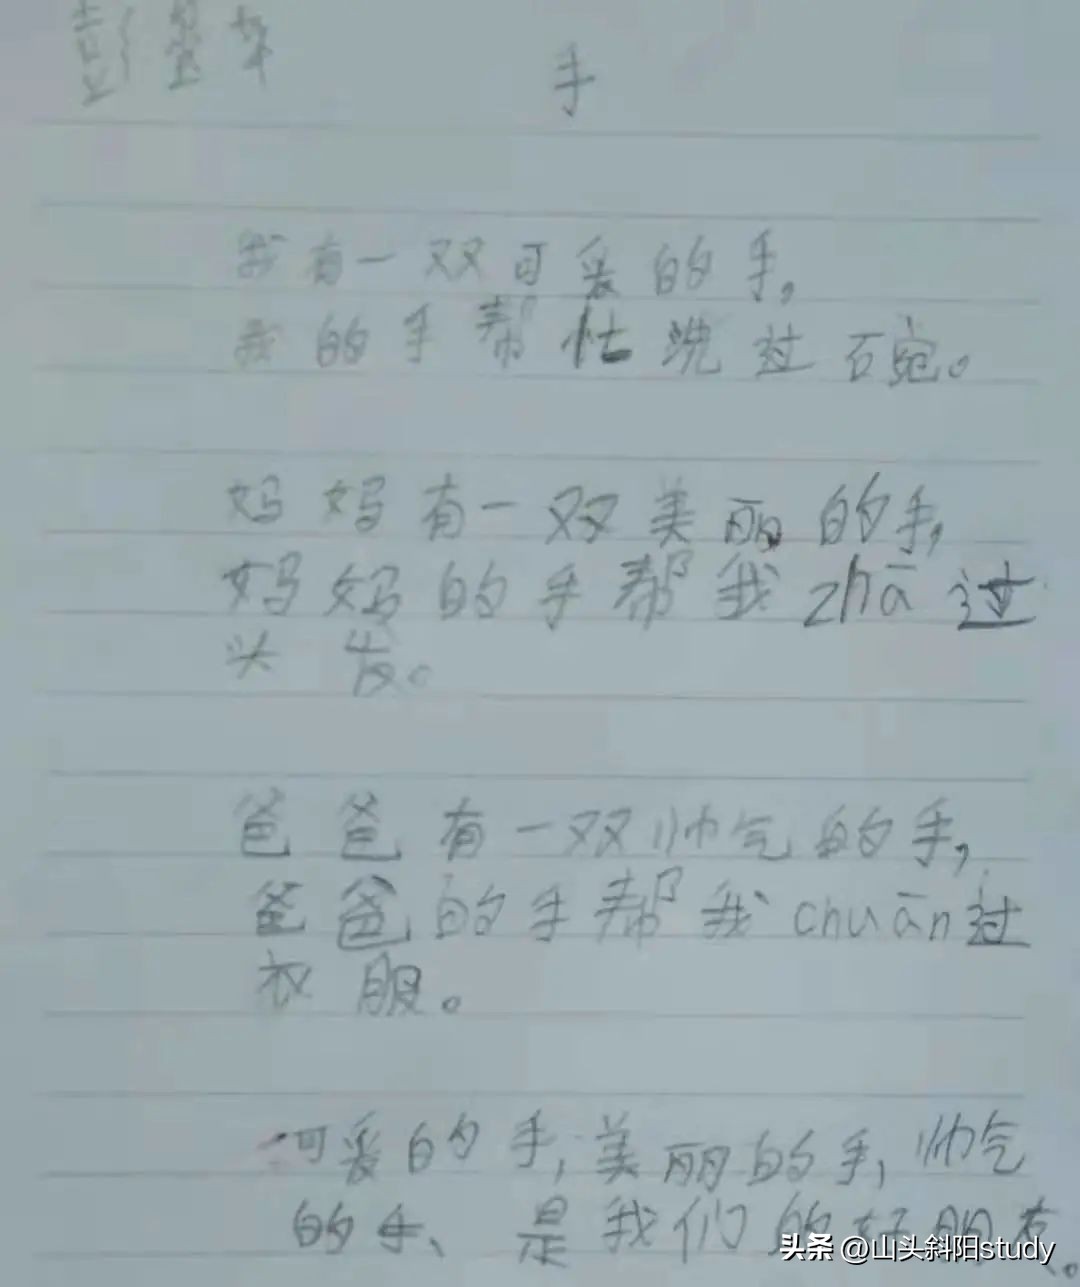 手
我有一双可爱的手，
我的手帮忙洗过碗。
妈妈有一双美丽的手，
妈妈的手帮我zhā过
头发。
爸爸有一双帅气的手，
爸爸的手帮我chuān过
衣服。
可爱的手，美丽的手，帅气
的手、是我们的好朋友。
头条 @山头斜阳study